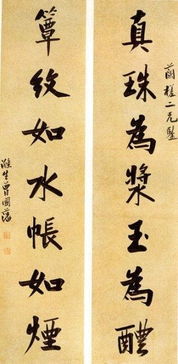 真珠為漿玉為醴
蘭樓二兄鑒
簟紋如水帳如煙
滌生曾國藩